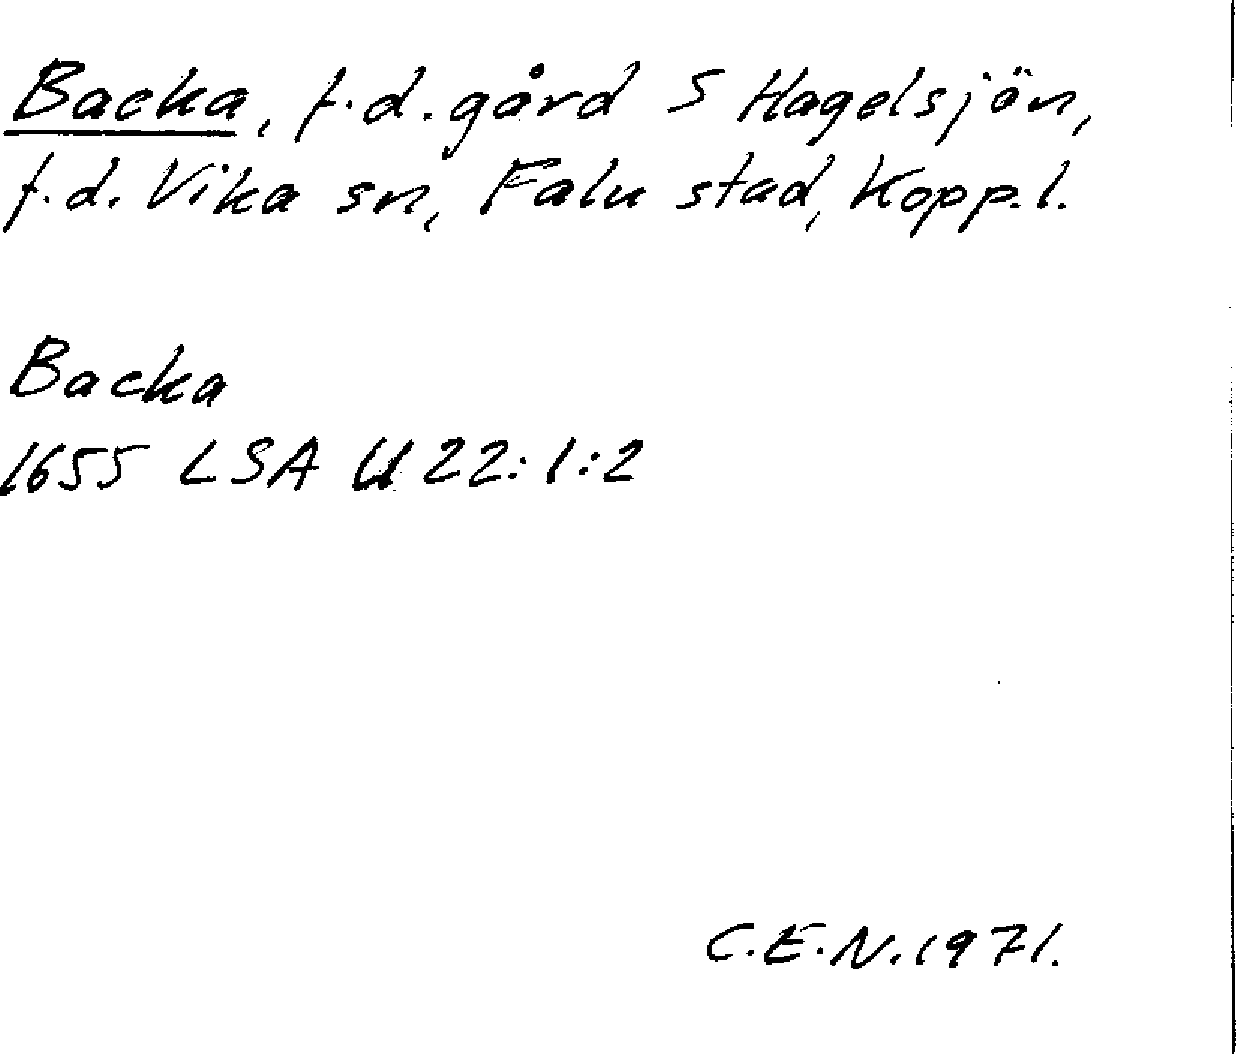 Backa, f.d. gård S Hagelsjön,
f.d. Vika sn, Falu stad, Kopp. l.
Backa
1655 LSA U 22:1:2
C.E.N. 1971.